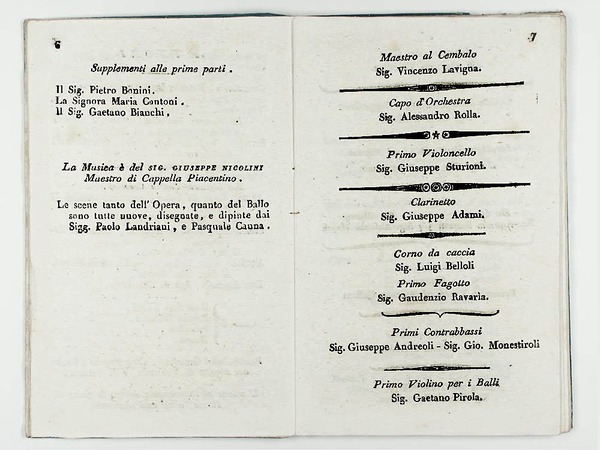 6
Supplementi alle prime parti.
Il Sig. Pietro Bonini.
La Signora Maria Contoni.
Il Sig. Gaetano Bianchi.
La Musica è del SIG. GIUSEPPE NICOLINI
Maestro di Cappella Piacentino.
Le scene tanto dell' Opera, quanto del Ballo
sono tutte nuove, disegnate, e dipinte dai
Sigg. Paolo Landriani, e Pasquale Canna.
7
Maestro al Cembalo
Sig. Vincenzo Lavigna.
Capo d'Orchestra
Sig. Alessandro Rolla.
Primo Violoncello
Sig. Giuseppe Sturioni.
Clarinetto
Sig. Giuseppe Adami.
Corno da caccia
Sig. Luigi Belloli
Primo Fagotto
Sig. Gaudenzio Ravarìa.
Primi Contrabbassi
Sig. Giuseppe Andreoli - Sig. Gio. Monestiroli
Primo Violino per i Balli
Sig. Gaetano Pirola.